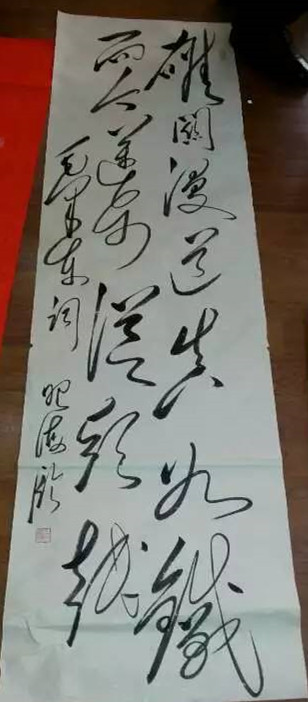 雄關漫道真如鐵
而今邁步從頭越
毛澤东詞